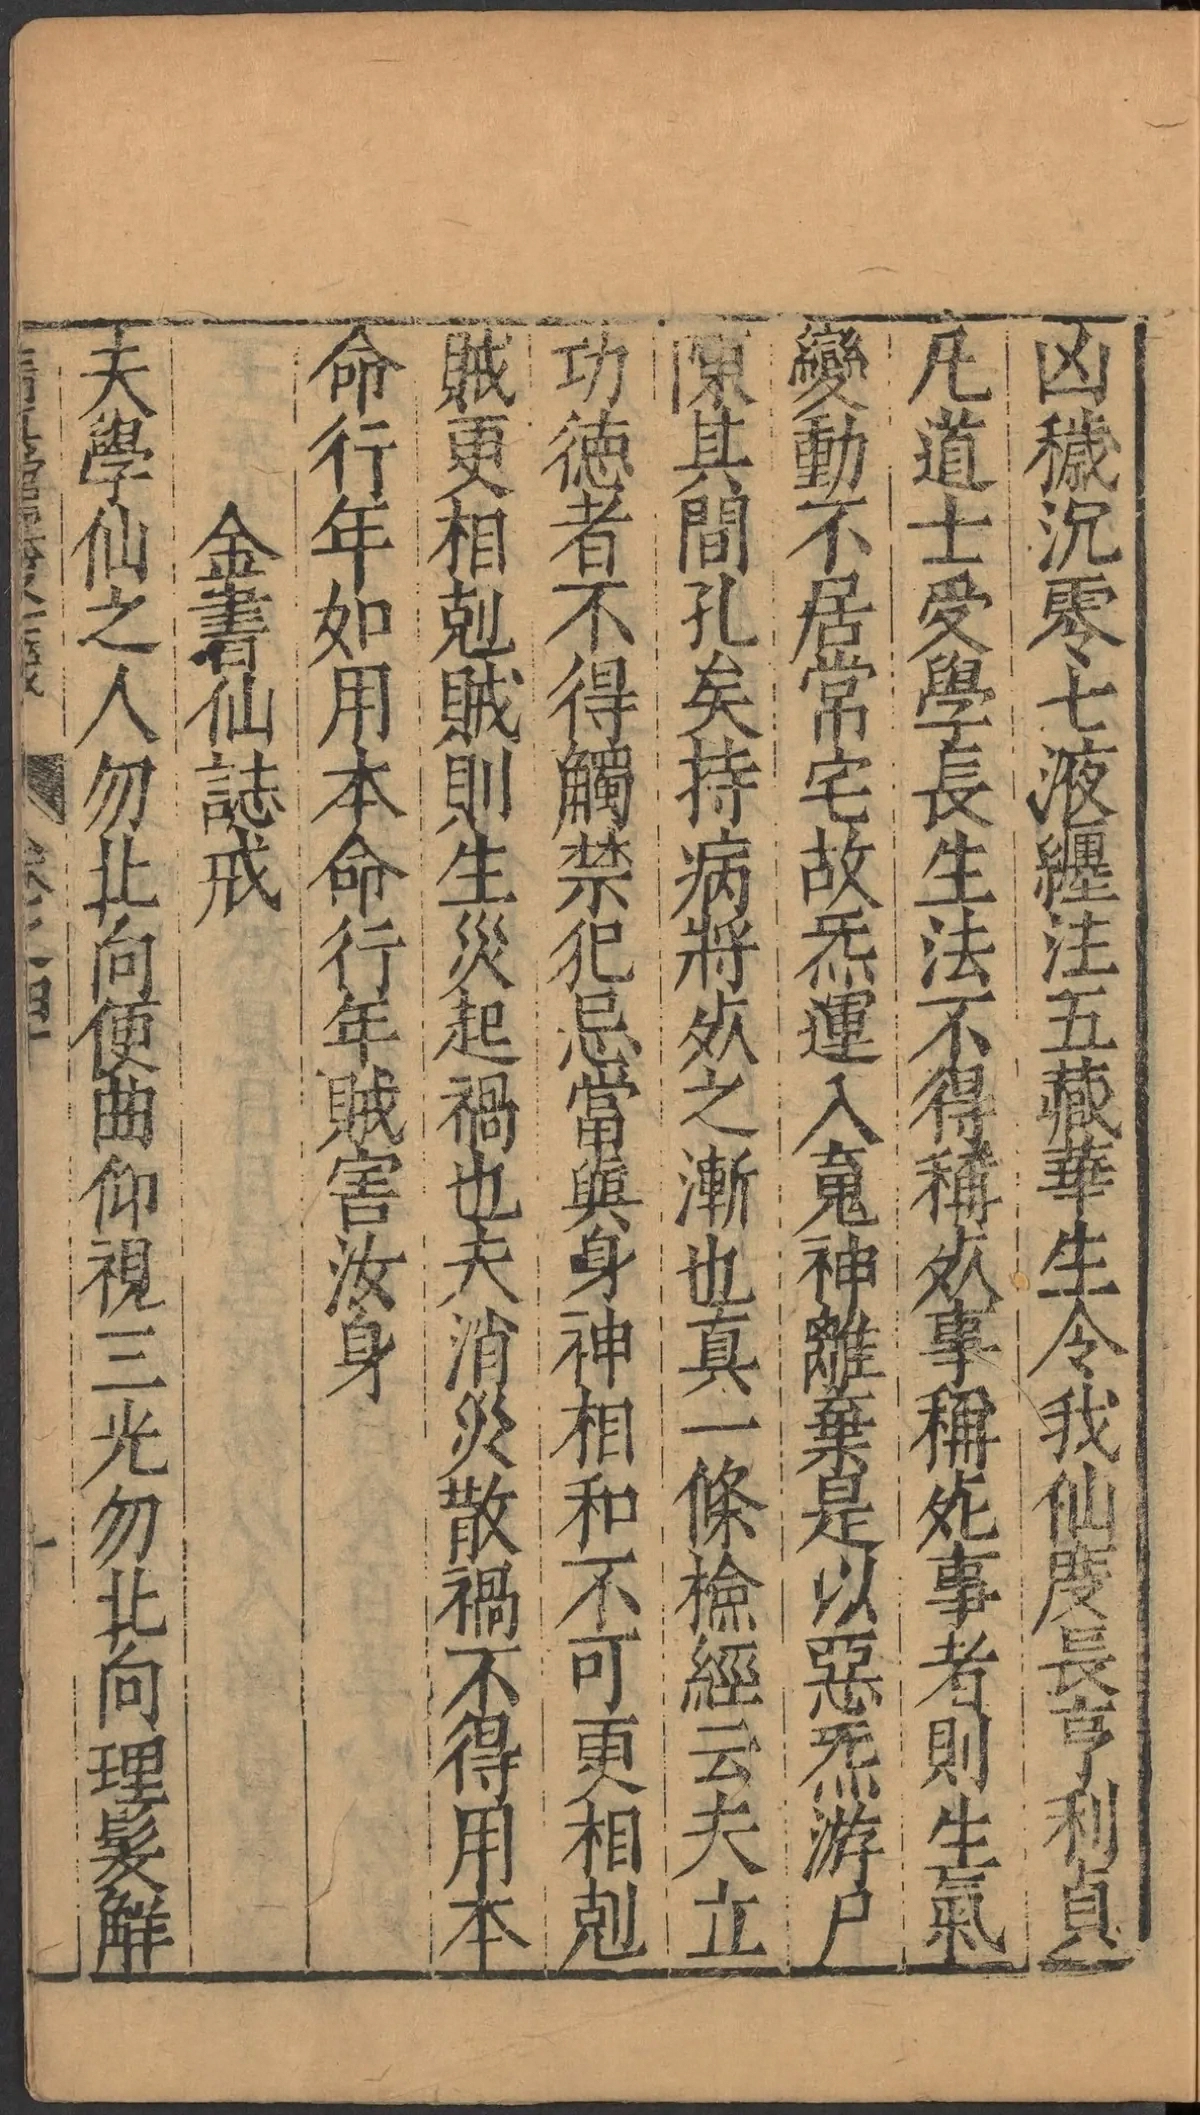 凶穢沉零七液纏注五藏華生令我仙度長亨利貞
凡道士受學長生法不得稱夗事稱死事者則生氣
變動不居常宅故炁運入䰟神離棄是以惡炁游尸
陳其間孔矣持病將夗之漸也真一條檢經云夫立
功德者不得觸禁犯忌當與身神相和不可更相剋
賊更相剋賊則生災起禍也夫消災散禍不得用本
命行年如用本命行年賊害汝身
金書仙誌戒
夫學仙之人勿北向便曲仰視三光勿北向理髮解